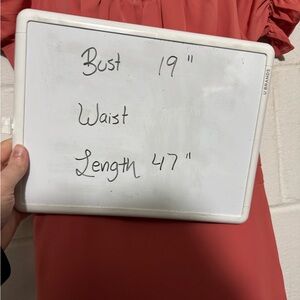 Bust 19"
Waist
Length 47"
U BRANDS